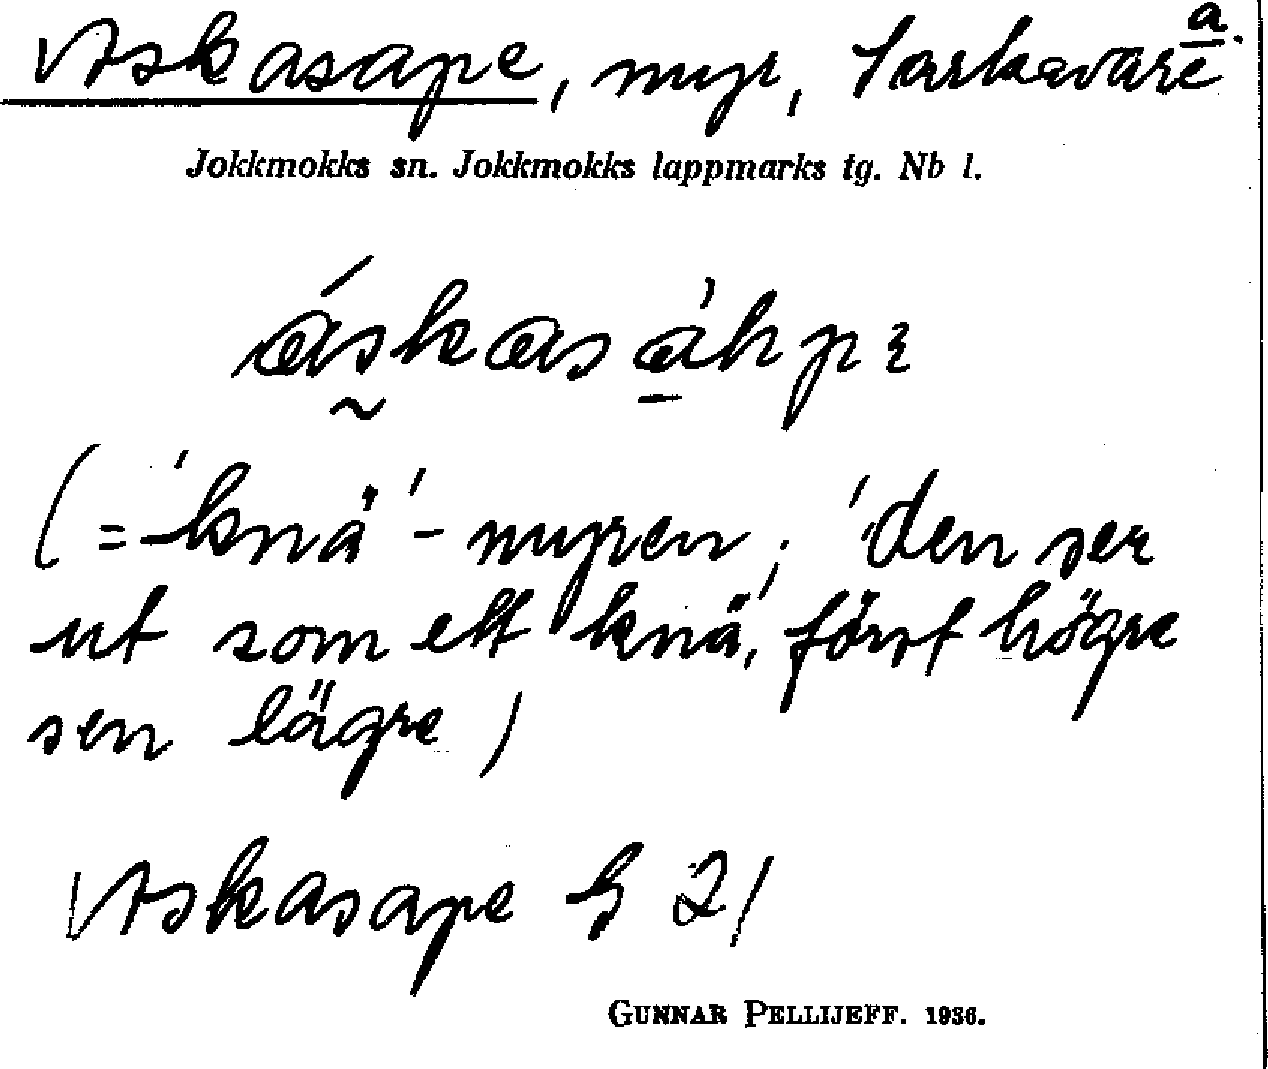 Askasape, myr, Tarkavare a.
Jokkmokks sn. Jokkmokks lappmarks tg. Nb l.
áskasáhpɛ
(= 'knä'-myren; 'den ser
ut som ett knä', först högre
sen lägre)
Askasape G 21
GUNNAR PELLIJEFF. 1936.